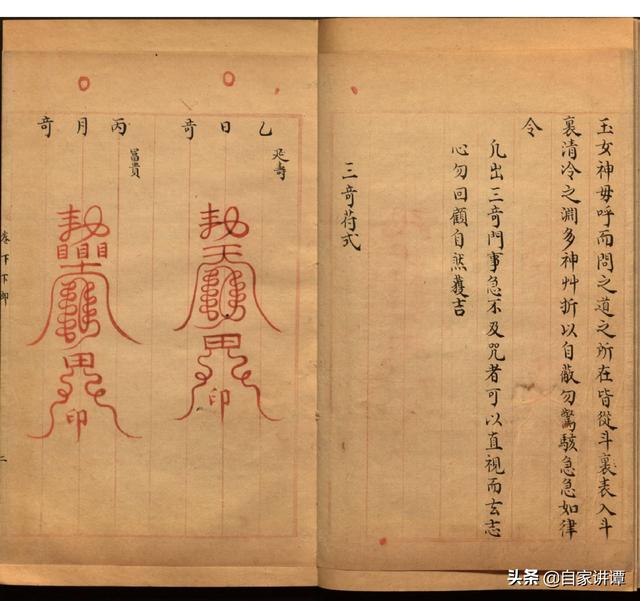 玉女神毋呼而問之道之所在皆從斗裏表入斗
裏清冷之淵多神艸折以自蔽勿驚駭急急如律
令
凢出三竒門事急不及咒者可以直視而玄志
心勿回顧自然獲吉
三竒符式
乙日竒
延壽
印
丙月竒
富貴
印
二
头条 @自家讲谭